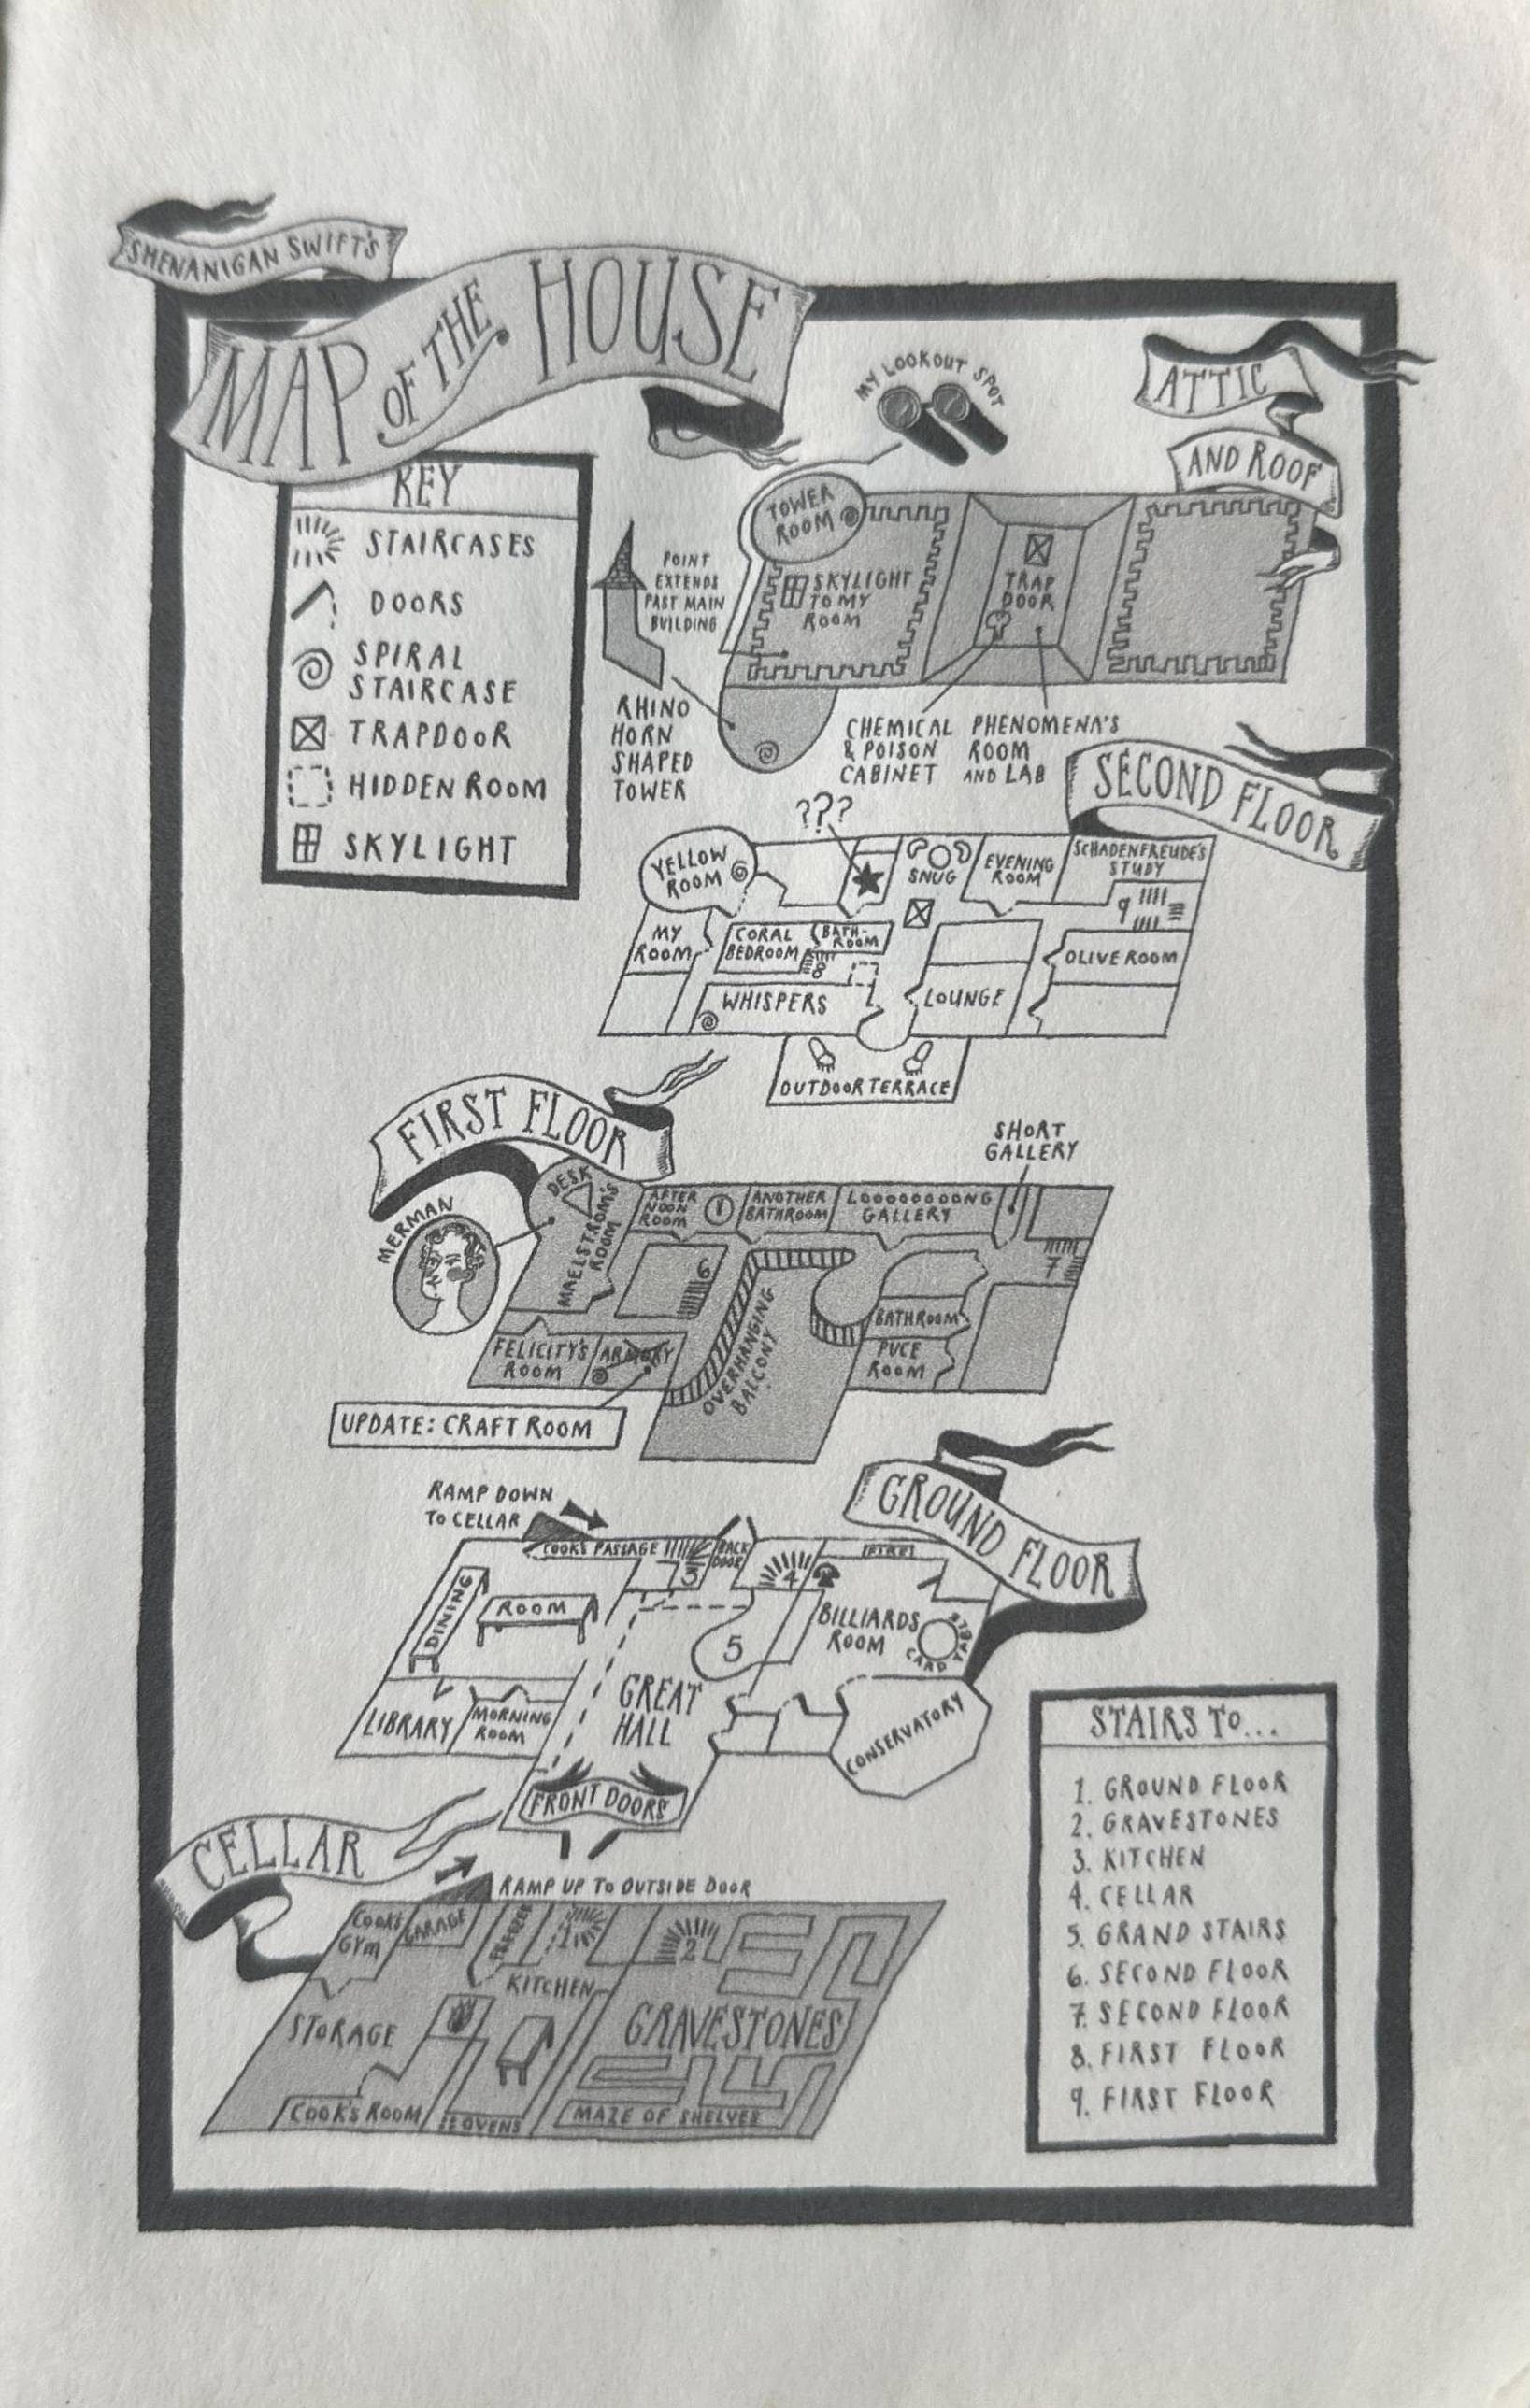 SHENANIGAN SWIFT'S
MAP OF THE HOUSE
KEY
STAIRCASES
DOORS
SPIRAL
STAIRCASE
TRAPDOOR
HIDDEN ROOM
SKYLIGHT
ATTIC
AND ROOF
MY LOOKOUT SPOT
TOWER
ROOM
POINT
EXTENDS
PAST MAIN
BUILDING
SKYLIGHT
TO MY
ROOM
TRAP
DOOR
RHINO
HORN
SHAPED
TOWER
CHEMICAL
& POISON
CABINET
PHENOMENA'S
ROOM
AND LAB
SECOND FLOOR
???
YELLOW
ROOM
SNUG
EVENING
ROOM
SCHADENFREUDE'S
STUDY
9
MY
ROOM
CORAL
BEDROOM
BATH-
ROOM
8
OLIVE ROOM
WHISPERS
LOUNGE
OUTDOOR TERRACE
FIRST FLOOR
SHORT
GALLERY
MERMAN
DESK
MAELSTROM'S
ROOM
AFTER
NOON
ROOM
ANOTHER
BATHROOM
LOOOOOOOONG
GALLERY
6
7
OVERHANGING
BALCONY
BATHROOM
PUCE
ROOM
FELICITY'S
ROOM
ARMORY
UPDATE: CRAFT ROOM
GROUND FLOOR
RAMP DOWN
TO CELLAR
COOK'S PASSAGE
3
BACK
DOOR
4
FIRE
DINING
ROOM
5
BILLIARDS
ROOM
CARD TABLE
GREAT
HALL
LIBRARY
MORNING
ROOM
CONSERVATORY
FRONT DOORS
CELLAR
RAMP UP TO OUTSIDE DOOR
COOK'S
GYM
GARAGE
FREEZER
1
2
KITCHEN
STORAGE
GRAVESTONES
COOK'S ROOM
OVENS
MAZE OF SHELVES
STAIRS TO...
1. GROUND FLOOR
2. GRAVESTONES
3. KITCHEN
4. CELLAR
5. GRAND STAIRS
6. SECOND FLOOR
7. SECOND FLOOR
8. FIRST FLOOR
9. FIRST FLOOR